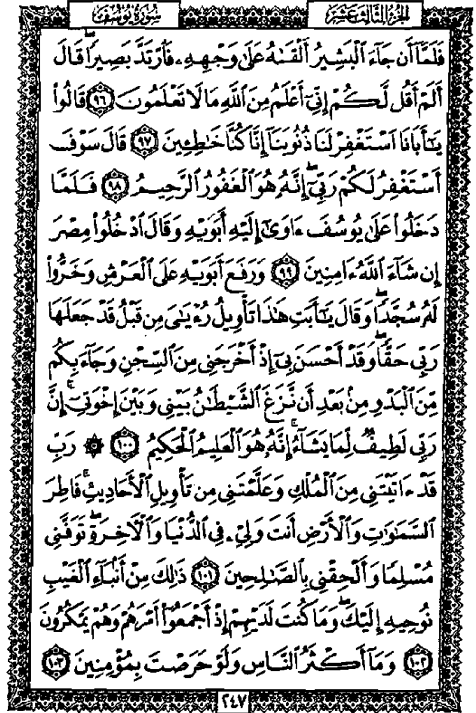 سُورَةُ يُوسُفَ
الجزء الثالث عشر
فَلَمَّا أَن جَاءَ الْبَشِيرُ أَلْقَىٰهُ عَلَىٰ وَجْهِهِ فَارْتَدَّ بَصِيرًا قَالَ
أَلَمْ أَقُل لَّكُمْ إِنِّي أَعْلَمُ مِنَ اللَّهِ مَا لَا تَعْلَمُونَ ٩٦ قَالُوا
يَٰأَبَانَا اسْتَغْفِرْ لَنَا ذُنُوبَنَا إِنَّا كُنَّا خَٰطِـِٔينَ ٩٧ قَالَ سَوْفَ
أَسْتَغْفِرُ لَكُمْ رَبِّي إِنَّهُ هُوَ الْغَفُورُ الرَّحِيمُ ٩٨ فَلَمَّا
دَخَلُوا عَلَىٰ يُوسُفَ ءَاوَىٰ إِلَيْهِ أَبَوَيْهِ وَقَالَ ادْخُلُوا مِصْرَ
إِن شَاءَ اللَّهُ ءَامِنِينَ ٩٩ وَرَفَعَ أَبَوَيْهِ عَلَى الْعَرْشِ وَخَرُّوا
لَهُ سُجَّدًا وَقَالَ يَٰأَبَتِ هَٰذَا تَأْوِيلُ رُءْيَٰيَ مِن قَبْلُ قَدْ جَعَلَهَا
رَبِّي حَقًّا وَقَدْ أَحْسَنَ بِي إِذْ أَخْرَجَنِي مِنَ السِّجْنِ وَجَاءَ بِكُم
مِّنَ الْبَدْوِ مِن بَعْدِ أَن نَّزَغَ الشَّيْطَٰنُ بَيْنِي وَبَيْنَ إِخْوَتِي إِنَّ
رَبِّي لَطِيفٌ لِّمَا يَشَاءُ إِنَّهُ هُوَ الْعَلِيمُ الْحَكِيمُ ١٠٠ ۞ رَبِّ
قَدْ ءَاتَيْتَنِي مِنَ الْمُلْكِ وَعَلَّمْتَنِي مِن تَأْوِيلِ الْأَحَادِيثِ فَاطِرَ
السَّمَٰوَٰتِ وَالْأَرْضِ أَنتَ وَلِيِّۦ فِي الدُّنْيَا وَالْءَاخِرَةِ تَوَفَّنِي
مُسْلِمًا وَأَلْحِقْنِي بِالصَّٰلِحِينَ ١٠١ ذَٰلِكَ مِنْ أَنبَاءِ الْغَيْبِ
نُوحِيهِ إِلَيْكَ وَمَا كُنتَ لَدَيْهِمْ إِذْ أَجْمَعُوا أَمْرَهُمْ وَهُمْ يَمْكُرُونَ
١٠٢ وَمَا أَكْثَرُ النَّاسِ وَلَوْ حَرَصْتَ بِمُؤْمِنِينَ ١٠٣
٢٤٧